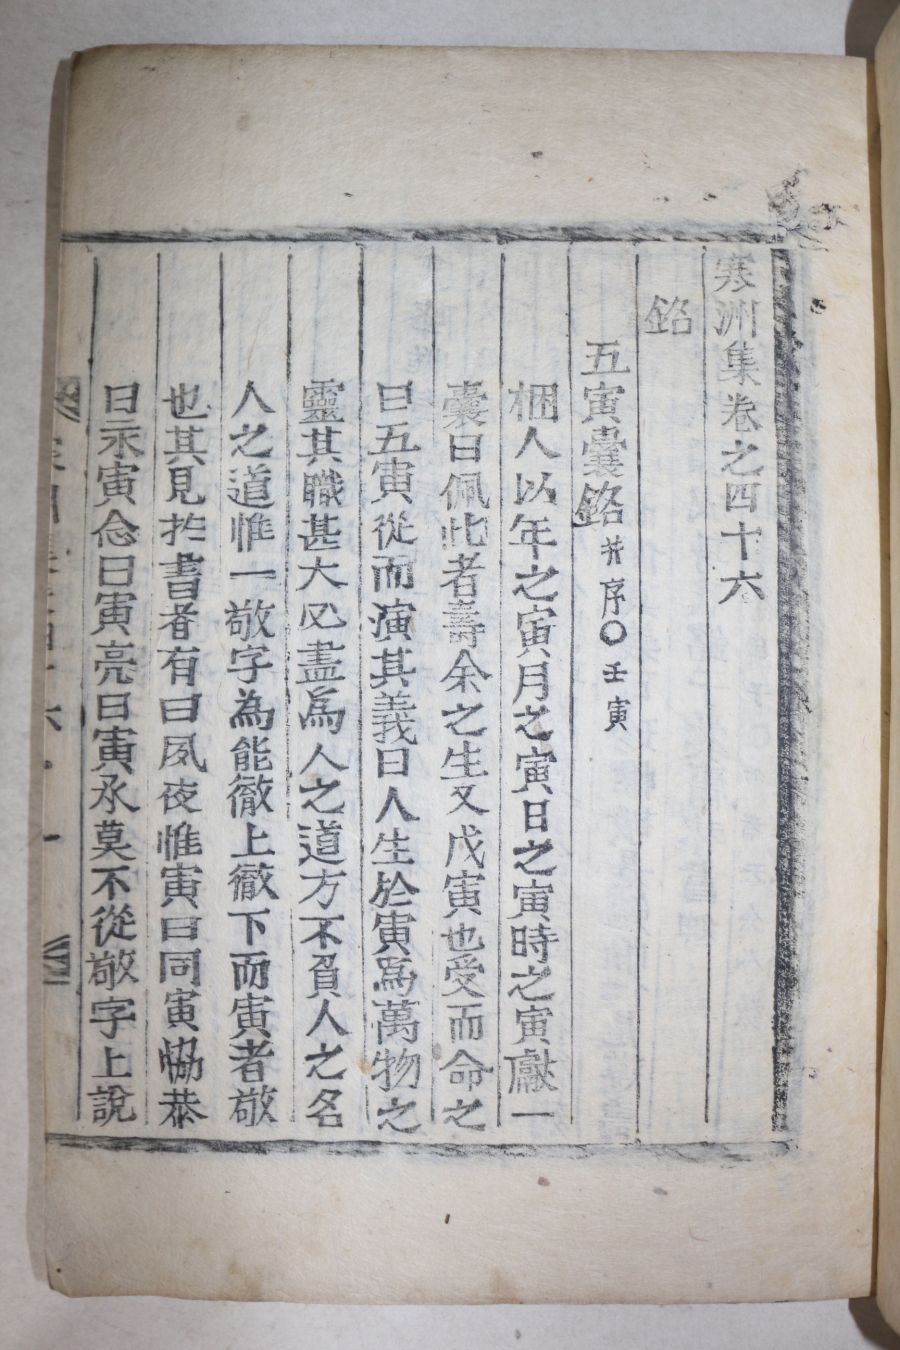 寒洲集卷之四十六
銘
五寅囊銘 幷序〇壬寅
梱人以年之寅月之寅日之寅時之寅獻一
囊曰佩此者壽余之生又戊寅也受而命之
曰五寅從而演其義曰人生於寅爲萬物之
靈其職甚大必盡爲人之道方不負人之名
人之道惟一敬字為能徹上徹下而寅者敬
也其見扵書者有曰夙夜惟寅曰同寅恊恭
曰永寅念曰寅亮曰寅永莫不從敬字上說